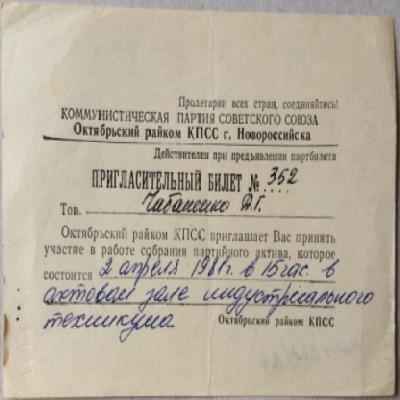 Пролетарии всех стран, соединяйтесь!
КОММУНИСТИЧЕСКАЯ ПАРТИЯ СОВЕТСКОГО СОЮЗА
Октябрьский райком КПСС г. Новороссийска
Действителен при предъявлении партбилета
ПРИГЛАСИТЕЛЬНЫЙ БИЛЕТ № 352
Тов. Чабаненко В.Г.
Октябрьский райком КПСС приглашает Вас принять
участие в работе собрания партийного актива, которое
состоится 2 апреля 1981г. в 15 час. в
актовом зале индустриального
техникума
Октябрьский райком КПСС